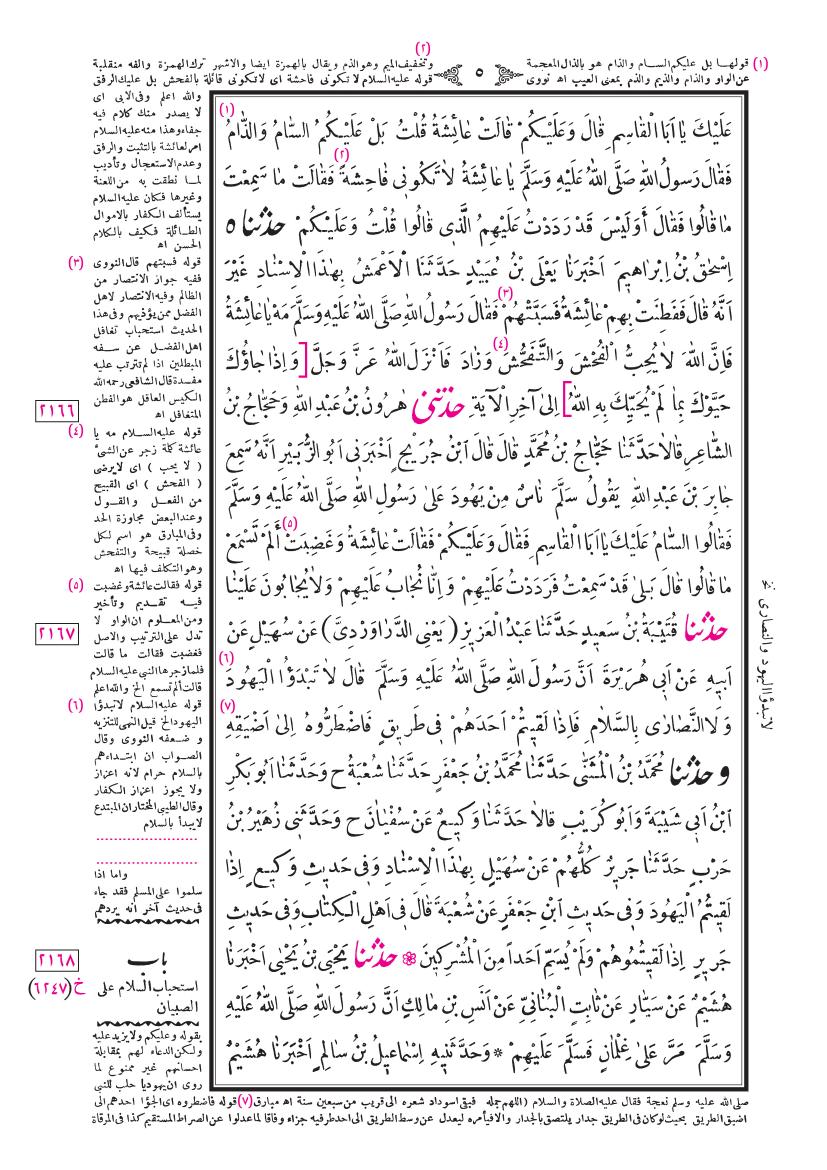 (٢)
(١) قولها بل عليكم السام والذام هو بالذال المعجمة
وتخفيف الميم وهو الذم ويقال بالهمزة ايضا والاشهر ترك الهمزة والفه منقلبة
٥
عن الواو والذام والذيم والذم بمعنى العيب اه نووى
قوله عليه السلام لا تكونى فاحشة اى لا تكونى قائلة بالفحش بل عليك الرفق
(١)
عَلَيْكَ يَا اَبَا الْقَاسِمِ قَالَ وَعَلَيْكُمْ قَالَتْ عَائِشَةُ قُلْتُ بَلْ عَلَيْكُمُ السَّامُ وَالذَّامُ
(٢)
فَقَالَ رَسُولُ اللهِ صَلَّى اللهُ عَلَيْهِ وَسَلَّمَ يَا عَائِشَةُ لَا تَكُونِى فَاحِشَةً فَقَالَتْ مَا سَمِعْتَ
مَا قَالُوا فَقَالَ أَوَلَيْسَ قَدْ رَدَدْتُ عَلَيْهِمُ الَّذِى قَالُوا قُلْتُ وَعَلَيْكُمْ حَدَّثَنَا ٥
اِسْحٰقُ بْنُ اِبْرَاهِيمَ اَخْبَرَنَا يَعْلَى بْنُ عُبَيْدٍ حَدَّثَنَا الْاَعْمَشُ بِهٰذَا الْاِسْنَادِ غَيْرَ
(٣)
اَنَّهُ قَالَ فَفَطِنَتْ بِهِمْ عَائِشَةُ فَسَبَّتْهُمْ فَقَالَ رَسُولُ اللهِ صَلَّى اللهُ عَلَيْهِ وَسَلَّمَ مَهْ يَا عَائِشَةُ
(٤)
فَاِنَّ اللهَ لَا يُحِبُّ الْفُحْشَ وَالتَّفَحُّشَ وَزَادَ فَاَنْزَلَ اللهُ عَزَّ وَجَلَّ [وَاِذَا جَاؤُكَ
حَيَّوْكَ بِمَا لَمْ يُحَيِّكَ بِهِ اللهُ] اِلٰى آخِرِ الْآيَةِ حَدَّثَنِى هٰرُونُ بْنُ عَبْدِ اللهِ وَحَجَّاجُ بْنُ
الشَّاعِرِ قَالَا حَدَّثَنَا حَجَّاجُ بْنُ مُحَمَّدٍ قَالَ قَالَ ابْنُ جُرَيْجٍ اَخْبَرَنِى اَبُو الزُّبَيْرِ اَنَّهُ سَمِعَ
جَابِرَ بْنَ عَبْدِ اللهِ يَقُولُ سَلَّمَ نَاسٌ مِنْ يَهُودَ عَلٰى رَسُولِ اللهِ صَلَّى اللهُ عَلَيْهِ وَسَلَّمَ
(٥)
فَقَالُوا السَّامُ عَلَيْكَ يَا اَبَا الْقَاسِمِ فَقَالَ وَعَلَيْكُمْ فَقَالَتْ عَائِشَةُ وَغَضِبَتْ أَلَمْ تَسْمَعْ
مَا قَالُوا قَالَ بَلٰى قَدْ سَمِعْتُ فَرَدَدْتُ عَلَيْهِمْ وَاِنَّا نُجَابُ عَلَيْهِمْ وَلَا يُجَابُونَ عَلَيْنَا
حَدَّثَنَا قُتَيْبَةُ بْنُ سَعِيدٍ حَدَّثَنَا عَبْدُ الْعَزِيزِ (يَعْنِى الدَّرَاوَرْدِىَّ) عَنْ سُهَيْلٍ عَنْ
(٦)
اَبِيهِ عَنْ اَبِى هُرَيْرَةَ اَنَّ رَسُولَ اللهِ صَلَّى اللهُ عَلَيْهِ وَسَلَّمَ قَالَ لَا تَبْدَؤُا الْيَهُودَ
(٧)
وَلَا النَّصَارٰى بِالسَّلَامِ فَاِذَا لَقِيتُمْ اَحَدَهُمْ فِى طَرِيقٍ فَاضْطَرُّوهُ اِلٰى اَضْيَقِهِ
وَحَدَّثَنَا مُحَمَّدُ بْنُ الْمُثَنّٰى حَدَّثَنَا مُحَمَّدُ بْنُ جَعْفَرٍ حَدَّثَنَا شُعْبَةُ ح وَحَدَّثَنَا اَبُو بَكْرِ
ابْنُ اَبِى شَيْبَةَ وَاَبُو كُرَيْبٍ قَالَا حَدَّثَنَا وَكِيعٌ عَنْ سُفْيَانَ ح وَحَدَّثَنِى زُهَيْرُ بْنُ
حَرْبٍ حَدَّثَنَا جَرِيرٌ كُلُّهُمْ عَنْ سُهَيْلٍ بِهٰذَا الْاِسْنَادِ وَفِى حَدِيثِ وَكِيعٍ اِذَا
لَقِيتُمُ الْيَهُودَ وَفِى حَدِيثِ ابْنِ جَعْفَرٍ عَنْ شُعْبَةَ قَالَ فِى اَهْلِ الْكِتَابِ وَفِى حَدِيثِ
جَرِيرٍ اِذَا لَقِيتُمُوهُمْ وَلَمْ يُسَمِّ اَحَداً مِنَ الْمُشْرِكِينَ ۞ حَدَّثَنَا يَحْيَى بْنُ يَحْيٰى اَخْبَرَنَا
هُشَيْمٌ عَنْ سَيَّارٍ عَنْ ثَابِتٍ الْبُنَانِىِّ عَنْ اَنَسِ بْنِ مَالِكٍ اَنَّ رَسُولَ اللهِ صَلَّى اللهُ عَلَيْهِ
وَسَلَّمَ مَرَّ عَلٰى غِلْمَانٍ فَسَلَّمَ عَلَيْهِمْ * وَحَدَّثَنِيهِ اِسْمَاعِيلُ بْنُ سَالِمٍ اَخْبَرَنَا هُشَيْمٌ
لا تبدؤا اليهود والنصارى
والله اعلم وفى الابى اى
لا يصدر منك كلام فيه
جفاء وهذا منه عليه السلام
امر لعائشة بالتثبت والرفق
وعدم الاستعجال وتأديب
لما نطقت به من اللعنة
وغيرها فكان عليه السلام
يستألف الكفار بالاموال
الطائلة فكيف بالكلام
الحسن اه
(٣) قوله فسبتهم قال النووى
ففيه جواز الانتصار من
الظالم وفيه الانتصار لاهل
الفضل ممن يؤذيهم وفى هذا
الحديث استحباب تغافل
اهل الفضل عن سفه
المبطلين اذا لم تترتب عليه
مفسدة قال الشافعى رحمه الله
الكيس العاقل هو الفطن
المتغافل اه
٢١٦٦
(٤) قوله عليه السلام مه يا
عائشة كلمة زجر عن الشئ
( لا يحب ) اى لا يرضى
( الفحش ) اى القبيح
من الفعل والقول
وعند البعض مجاوزة الحد
وفى المبارق هو اسم لكل
خصلة قبيحة والتفحش
وهو التكلف فيها اه
(٥) قوله فقالت عائشة وغضبت
فيه تقديم وتأخير
ومن المعلوم ان الواو لا
تدل على الترتيب والاصل
فغضبت فقالت ما قالت
فلما زجرها النبى عليه السلام
قالت ألم تسمع الخ والله اعلم
٢١٦٧
(٦) قوله عليه السلام لا تبدؤا
اليهود الخ قيل النهى للتنزيه
وضعفه النووى وقال
الصواب ان ابتداءهم
بالسلام حرام لانه اعزاز
ولا يجوز اعزاز الكفار
وقال الطيبى المختار ان المبتدع
لا يبدأ بالسلام
واما اذا
سلموا على المسلم فقد جاء
فى حديث آخر انه يردهم
٢١٦٨
باب
استحباب السلام على
خ (٦٢٤٧)
الصبيان
بقوله وعليكم ولا يزيد عليه
ولكن الدعاء لهم بمقابلة
احسانهم غير ممنوع لما
روى ان يهوديا حلب للنبى
صلى الله عليه وسلم نعجة فقال عليه الصلاة والسلام (اللهم جمله فبقى اسوداد شعره الى قريب من سبعين سنة اه مبارق (٧) قوله فاضطروه اى الجؤا احدهم الى
اضيق الطريق بحيث لو كان فى الطريق جدار يلتصق بالجدار والا فيأمره ليعدل عن وسط الطريق الى احد طرفيه جزاء وفاقا لما عدلوا عن الصراط المستقيم كذا فى المرقاة